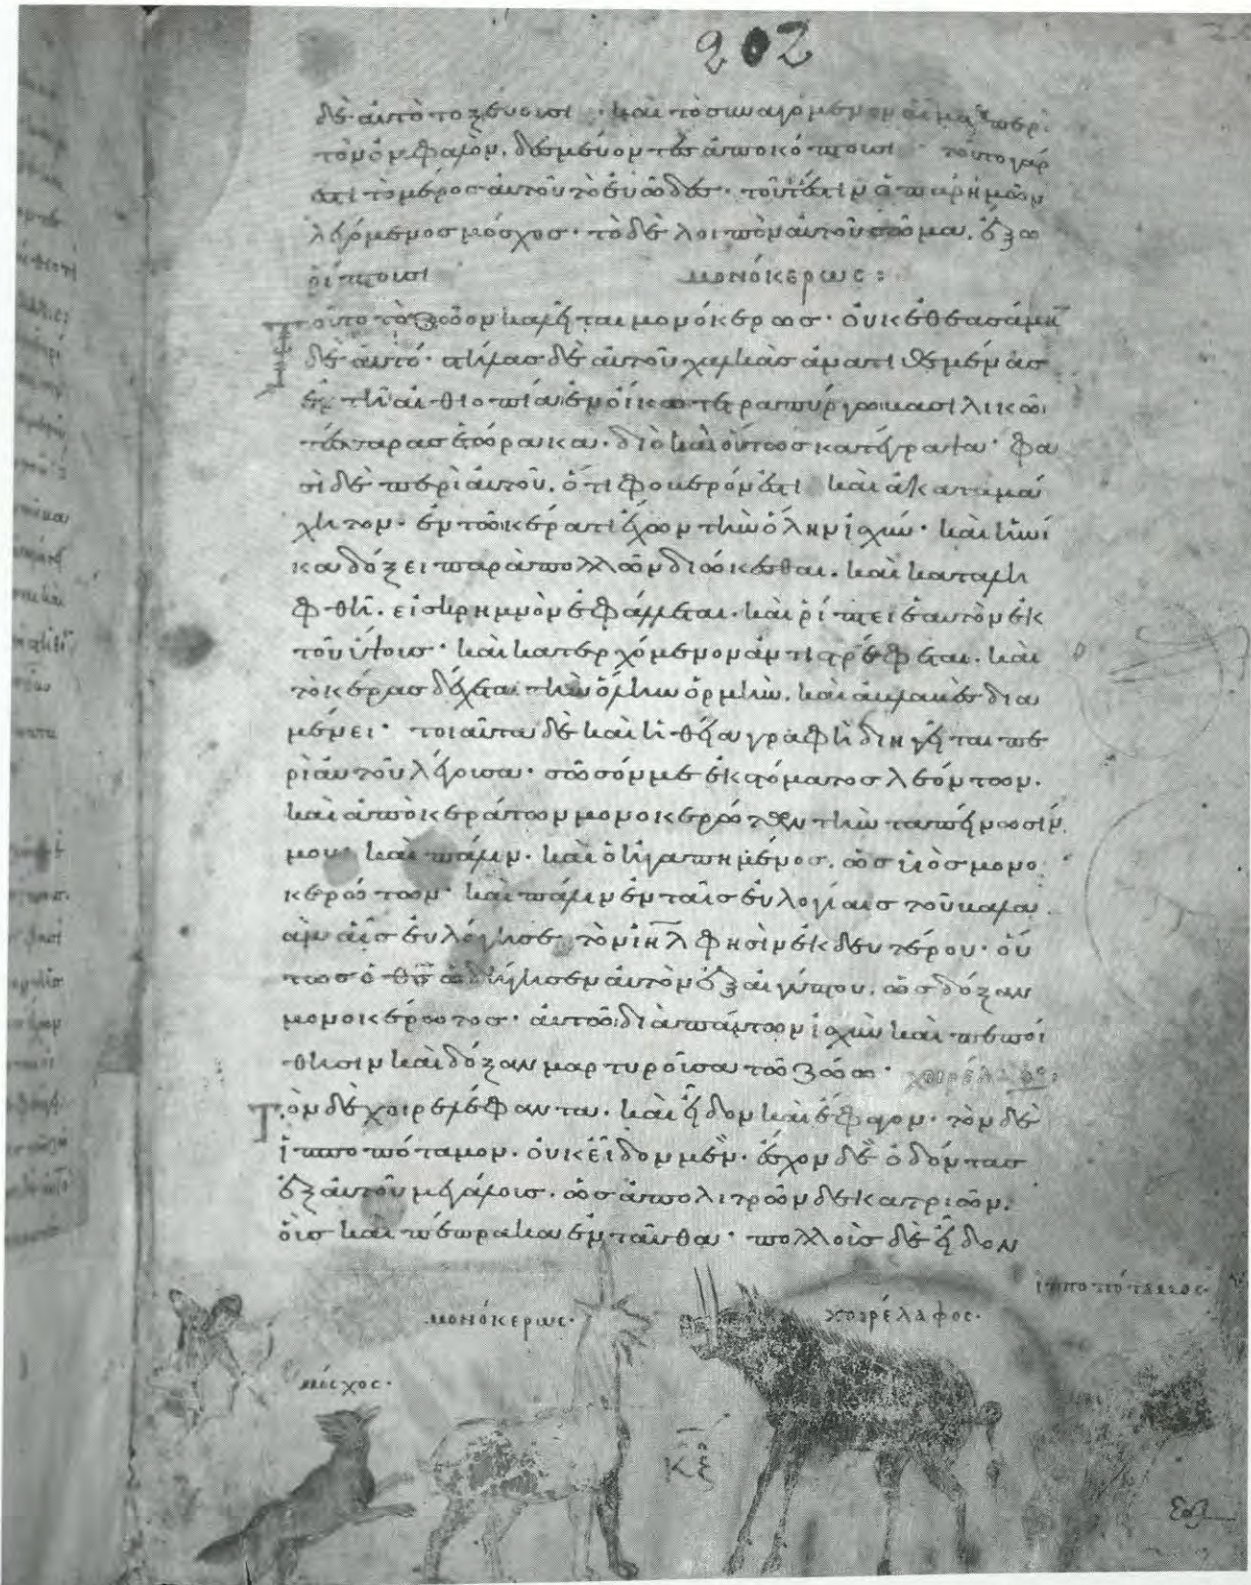 202
δὲ αὐτὸ τοξεύουσι · καὶ τὸ συναγόμενον αἷμα περὶ
τὸν ὀμφαλὸν, δεσμεύοντες ἀποκόπτουσι · τοῦτο γάρ
ἐστι τὸ μέρος αὐτοῦ τὸ εὐῶδες · τουτέστιν ὁ παρ' ἡμῶν
λεγόμενος μόσχος · τὸ δὲ λοιπὸν αὐτοῦ σῶμα, ἔξω
ρίπτουσι μονόκερως:
Τοῦτο τὸ ζῶον καλεῖται μονόκερως · οὐκ ἐθεασάμην
δὲ αὐτό · στήλας δὲ αὐτοῦ χαλκὰς ἀνατιθεμένας
ἐν τῆ αἰθιοπία ἐν οἴκω τετραπύργω βασιλικῶ
τέσσαρας ἑώρακα · διὸ καὶ οὕτως κατέγραψα · φα
σὶ δὲ περὶ αὐτοῦ, ὅτι φοβερόν ἐστι καὶ ἀκαταμά
χητον · ἐν τῶ κέρατι ἔχων τὴν ὅλην ἰσχύν · καὶ ἡνί
κα δόξει παρὰ πολλῶν διώκεσθαι, καὶ καταλη
φθῆ, εἰς κρημνὸν ἐφάλλεται, καὶ ρίπτει ἑαυτὸν ἐκ
τοῦ ὕψους · καὶ κατερχόμενον ἀντιστρέφεται, καὶ
τὸ κέρας δέχεται τὴν ὅλην ὁρμὴν, καὶ ἀβλαβὲς δια
μένει · τοιαῦτα δὲ καὶ ἡ θεία γραφὴ διηγεῖται πε
ρὶ αὐτοῦ λέγουσα · σῶσόν με ἐκ στόματος λεόντων,
καὶ ἀπὸ κεράτων μονοκερώτων τὴν ταπείνωσίν
μου · καὶ πάλιν · καὶ ὁ ἠγαπημένος, ὡς υἱὸς μονο
κερώτων · καὶ πάλιν ἐν ταῖς εὐλογίαις τοῦ βαλα
ὰμ αἷς εὐλόγησε τὸν ἰηλ φησὶν ἐκ δευτέρου · οὕ
τως ὁ θς ὡδήγησεν αὐτὸν ἐξ αἰγύπτου, ὡς δόξαν
μονοκέρωτος · αὐτοῦ διὰ πάντων ἰσχὺν καὶ πεποί
θησιν καὶ δόξαν μαρτυροῦσα τῶ ζώω · χοιρέλαφος:
Τὸν δὲ χοιρελέφαντα, καὶ εἶδον καὶ ἔφαγον · τὸν δὲ
ἱπποπόταμον, οὐκ εἶδον μὲν · ἔσχον δὲ ὀδόντας
ἐξ αὐτοῦ μεγάλους, ὡς ἀπὸ λιτρῶν δεκατριῶν,
οὓς καὶ πέπρακα ἐνταῦθα · πολλοὺς δὲ εἶδον
ἱπποπόταμος·
μονόκερως·
χοιρέλαφος·
μόσχος·